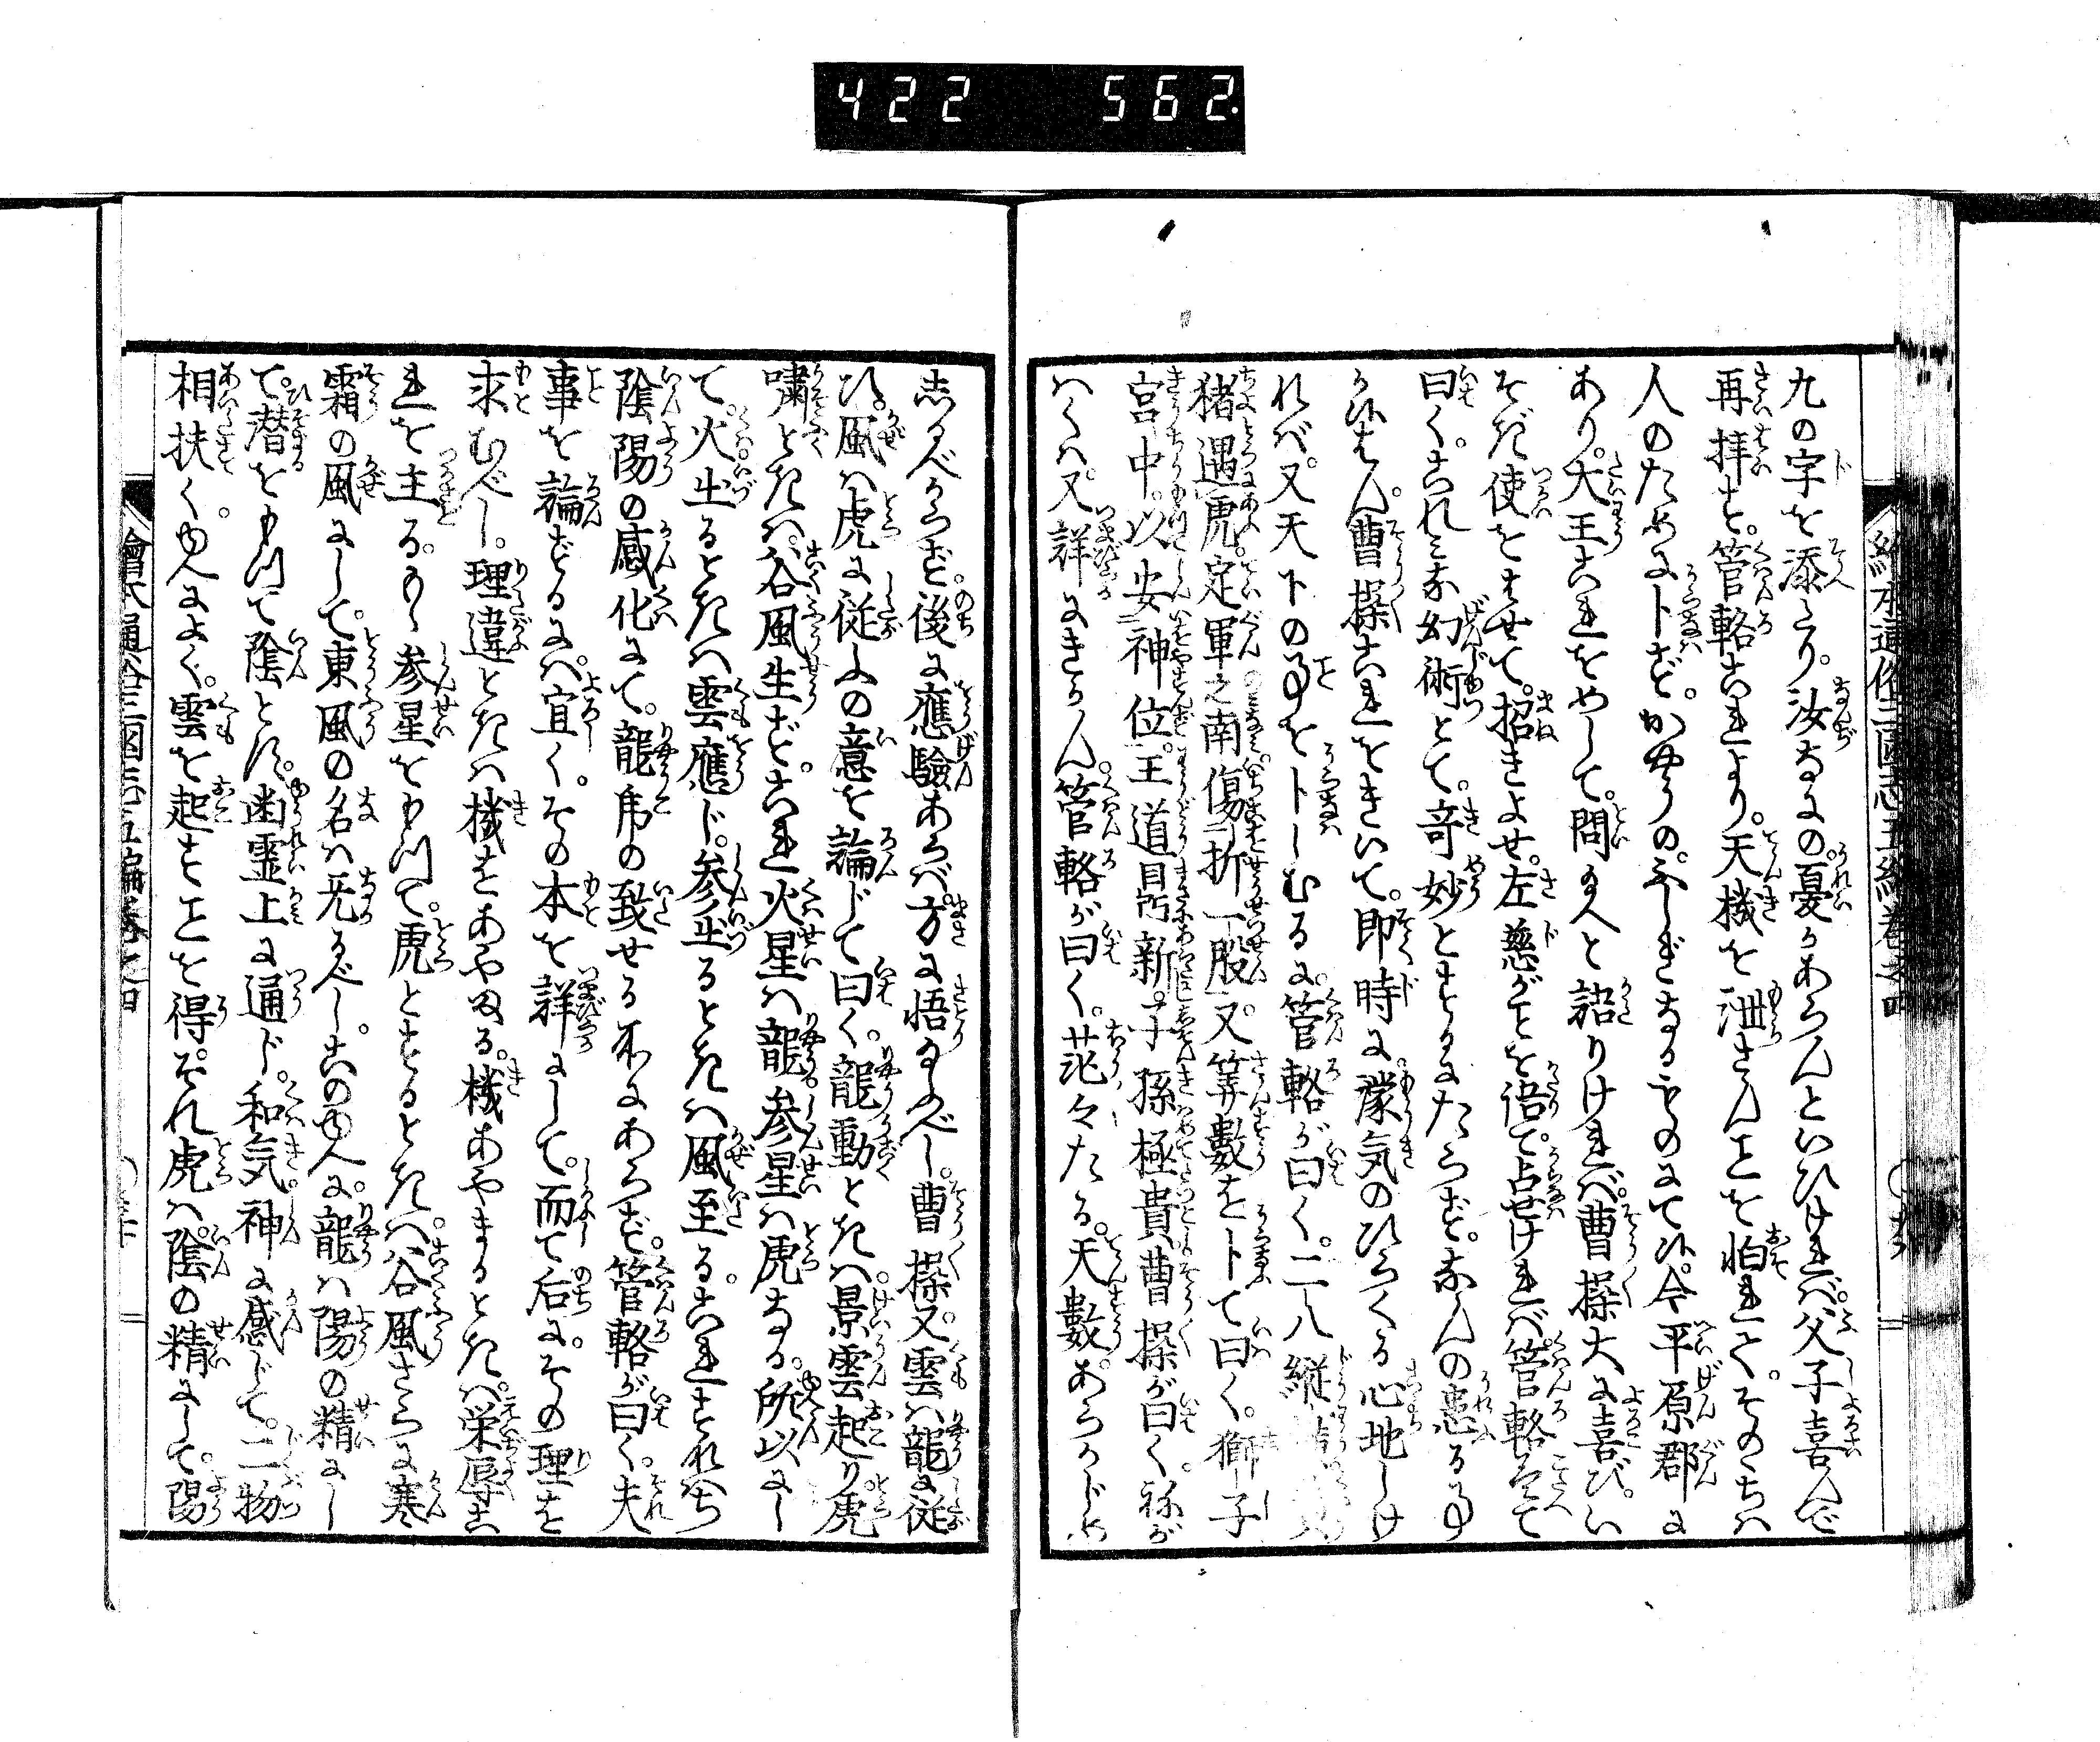 422 562
繪本通俗三國志五編卷之四
九の字を添たり。汝なにの憂かあらんといひければ。父子喜んで
再拝す。管輅これより。天機を泄さんことを怕れて。そのちハ
人のためにトせず。かやうのふしぎなるものにて候。今平原郡に
あり。大王これをめして。問給へと語りければ。曹操大に喜び。い
そぎ使をはせて。招きよせ。左慈がことを語て占せければ。管輅答て
曰く。これミな幻術とて。奇妙とするにたらず。なんの患るゝ事
か候はん。曹操これをきいて。即時に。濛気のひらくる心地しけ
れバ。又天下の事を卜しむるに。管輅が曰く。二八縦
猪遇虎。定軍之南傷折一股。又算數をトて曰く。獅子
宮中。以安神位。王道鼎新。子孫極貴。曹操が曰く。務が
ハくハ。又詳にきかん。管輅が曰く。茫々たる。天數。あらかじめ
しるべからず。後に應驗あらバ方に悟り給ふべし。曹操又。雲ハ龍に従
ひ。風ハ虎に従ふの意を論じて曰く。龍動ときハ。景雲起り虎
嘯ときハ。谷風生ず。これ火星ハ龍。参星ハ虎なる。所以にし
て。火出るときハ雲應じ。参出るときハ風至る。これすなハち
陰陽の感化にて。龍虎の致せる所にあらず。管輅が曰く。夫
事を論ずるにハ。宜く。その本を詳にして。而て后に。その理を
求むべし。理違ときハ機をあやまる。機あやまるときハ。栄辱こ
れを主る。もし参星をもつて。虎とするときハ。谷風さらに寒
霜の風にして。東風の名ハ无るべし。このゆへに。龍ハ陽の精にし
て。潜をもつて陰とす。幽霊上に通じ。和気。神に感じて。二物
相扶く。ゆへによく。雲を起すことを得。それ虎ハ。陰の精にして。陽
繪本通俗三國志五編卷之四